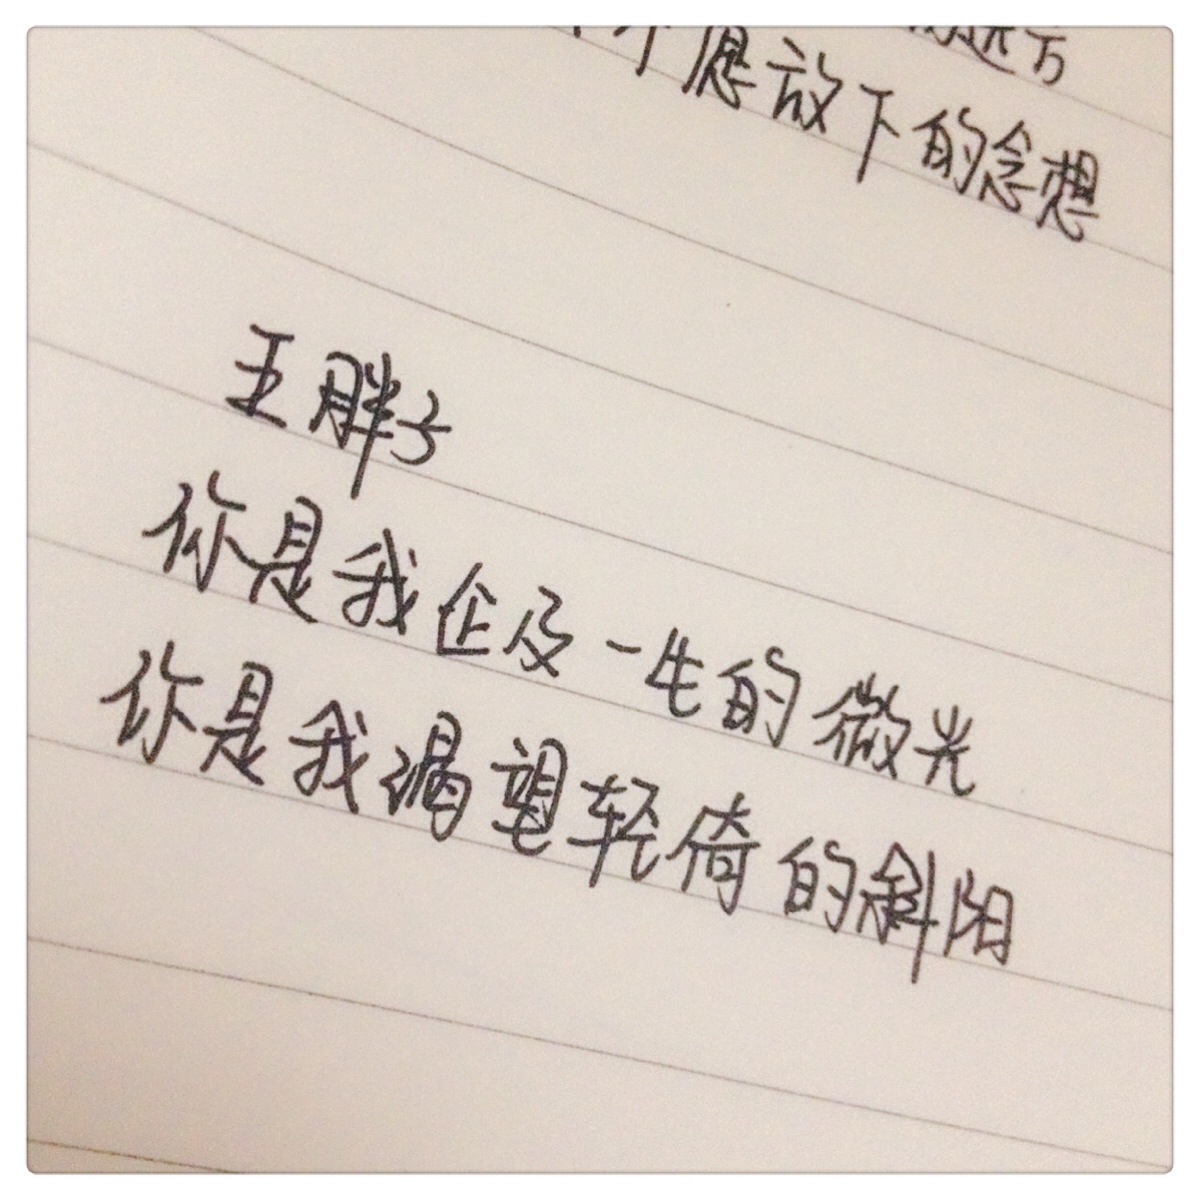 远方
不愿放下的念想
王胖子
你是我企及一生的微光
你是我渴望轻倚的斜阳